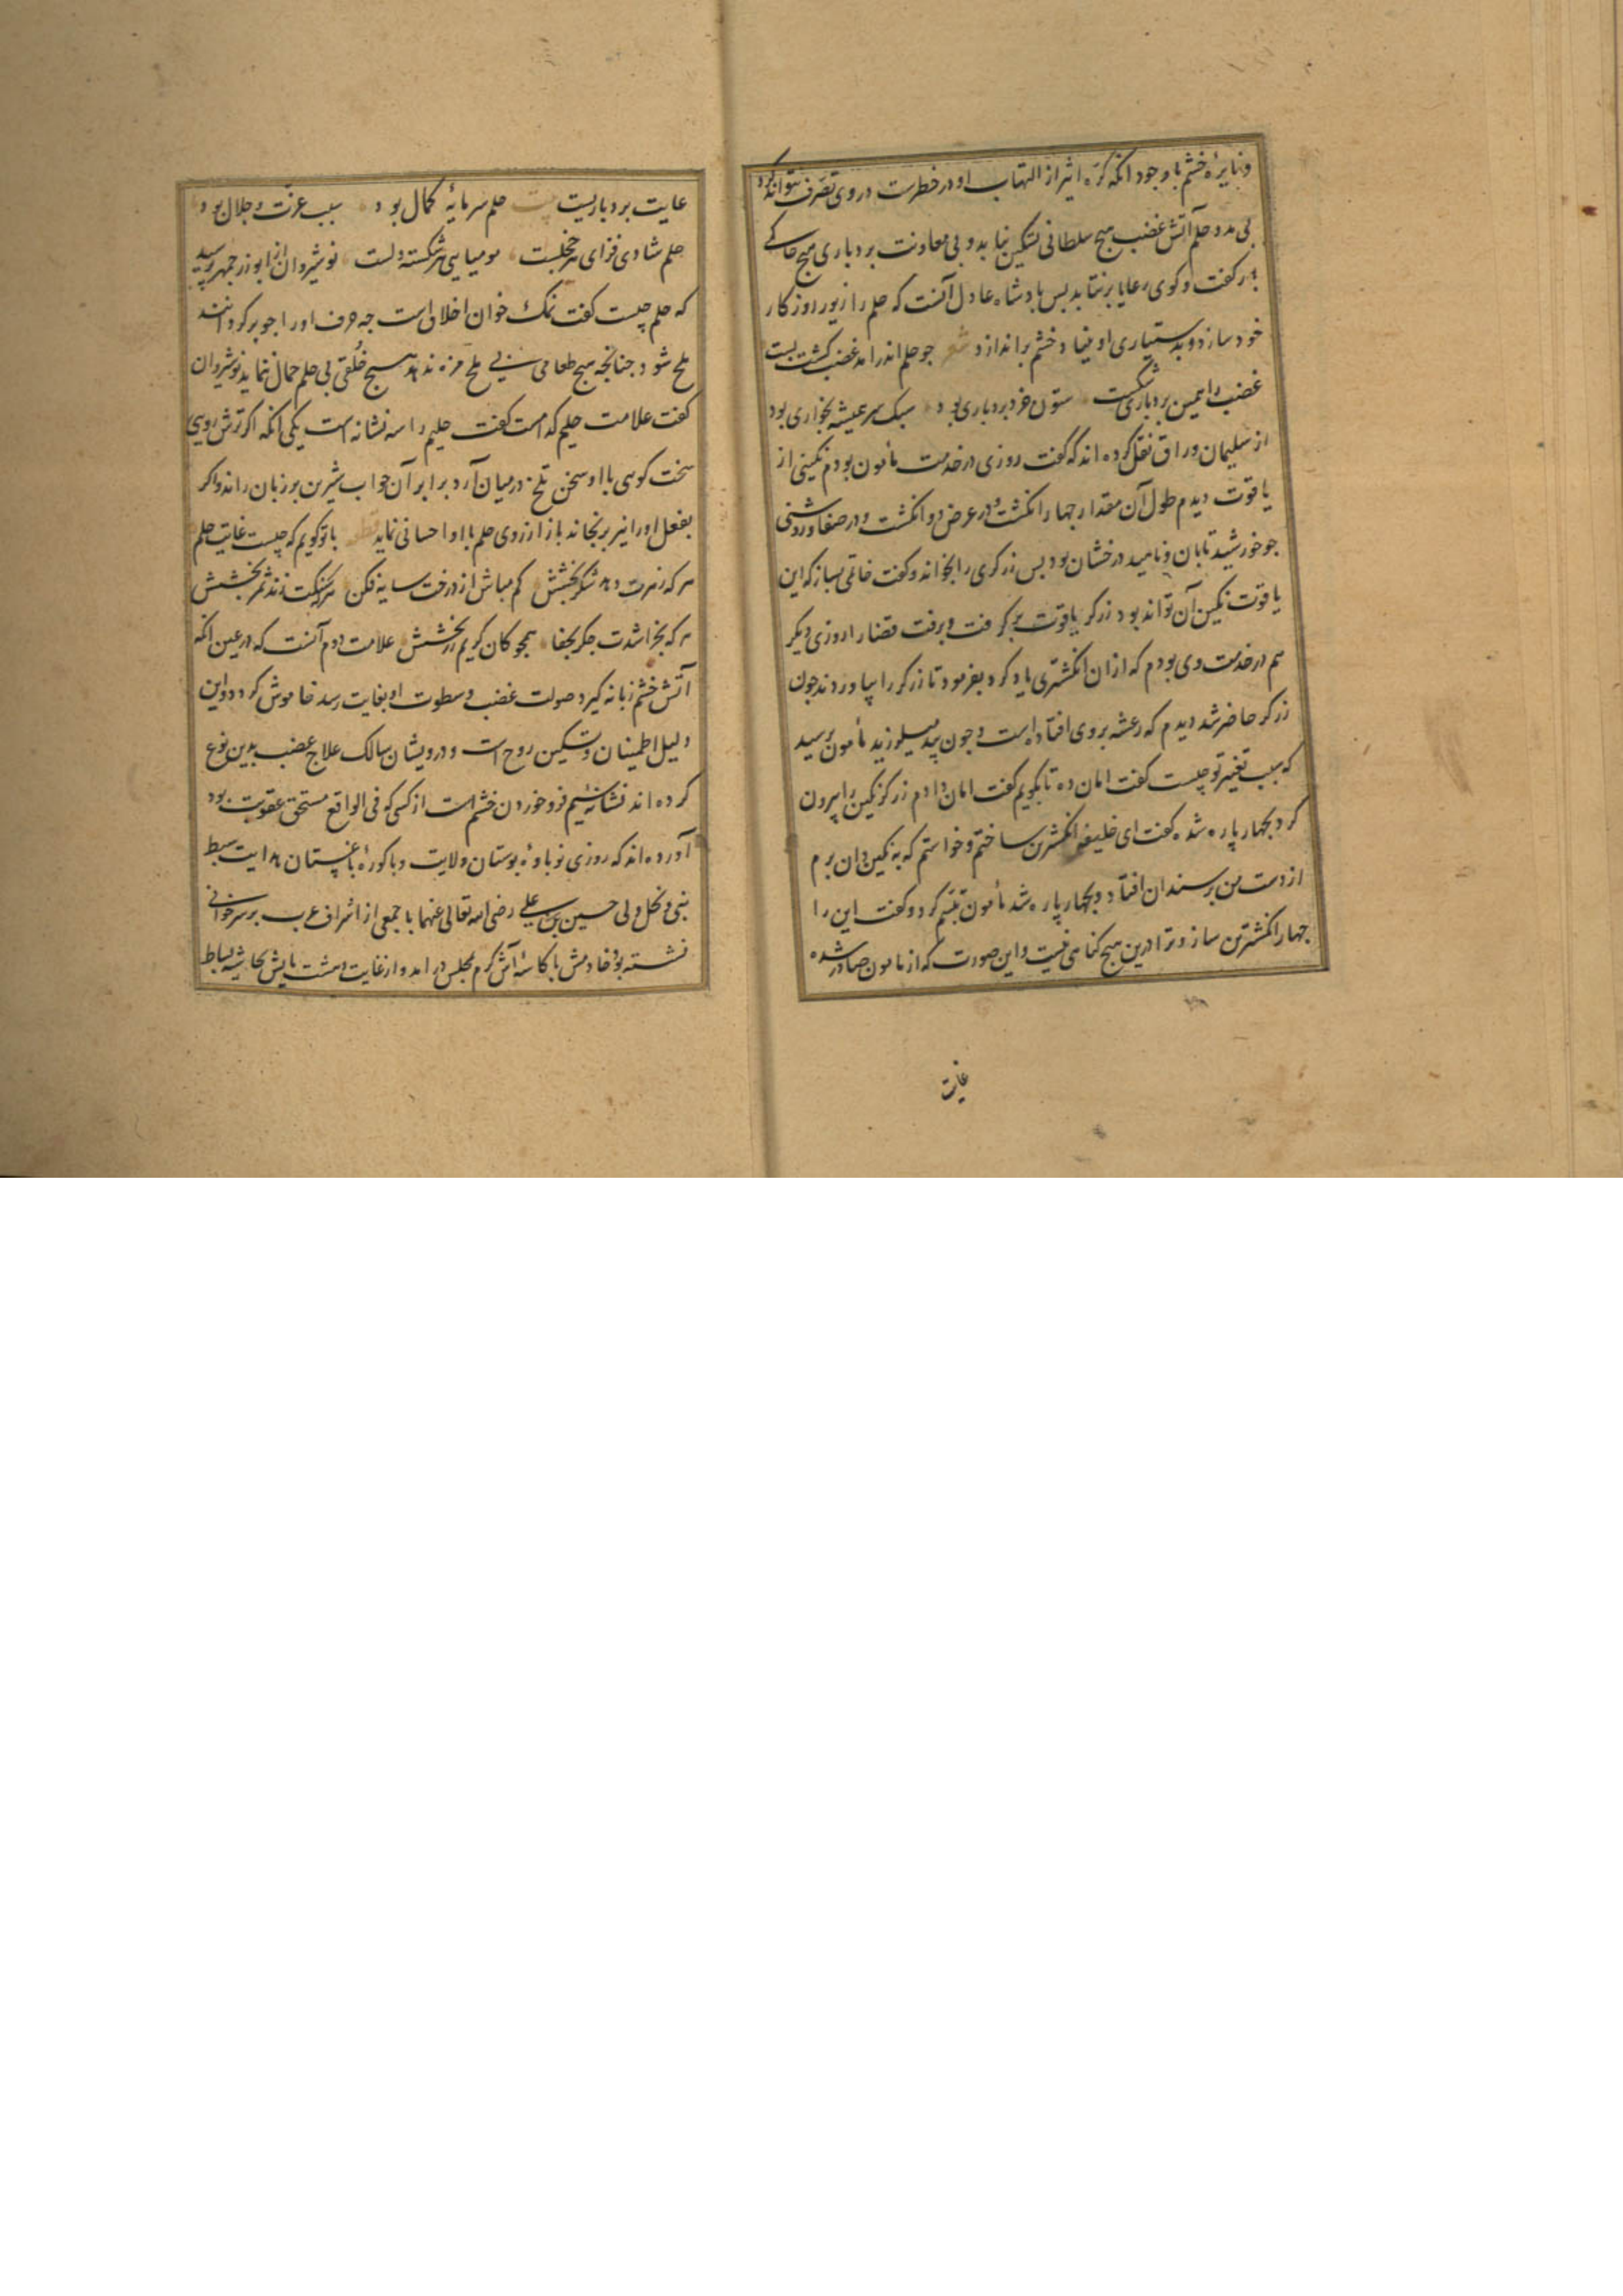 و نایرهٔ خشم با وجود آنکه کرهٔ اثیر از التهاب او در خطرست در وی تصرف نتواند کرد
بی مدد حلم آتش غضب هیچ سلطانی تسکین نیابد و بی معاونت بردباری هیچ حاکمی
بار کفت و کوی رعایا بر نتابد بس بادشاه عادل آنست که حلم را زیور روزکار
خود سازد و بدستیاری او بنیاد خشم براندازد شعر جو حلم اندر آمد غضب کشت بست
غضب را همین بردباری شکست ستون خرد بردباری بود سبک سر همیشه بخواری بود
از سلیمان وراق نقل کرده اند که کفت روزی در خدمت مأمون بودم نکینی از
یاقوت دیدم طول آن مقدار جهار انکشت و در عرض دو انکشت و در صفا و روشنی
جو خورشید تابان و ناهید درخشان بود بس زرکری را بخواند و کفت خاتمی بساز که این
یاقوت نکین آن تواند بود زرکر یاقوت بر کرفت و برفت قضا را روزی دیکر
هم در خدمت وی بودم که از ان انکشتری یاد کرد بفرمود تا زرکر را بیاوردند جون
زرکر حاضر شد دیدم که رعشه بر وی افتاده است و جون بید میلرزید مأمون برسید
که سبب تغیر تو چیست کفت امان ده تا بکویم کفت امان دادم زرکر نکین را بیرون
کرد بجهار پاره شده کفت ای خلیفه انکشترین ساختم و خواستم که به نکین دان برم
از دست من بر سندان افتاد و بجهار پاره شد مأمون تبسم کرد و کفت این را
جهار انکشترین ساز و ترا درین هیچ کناهی نیست و این صورت که از مأمون صادر شده
غایت
غایت بردباریست بیت حلم سرمایهٔ کمال بود سبب عزت و جلال بود
حلم شادی فزای هر خجلیست مومیایی هر شکسته دلست نوشیروان از ابوزرجمهر پرسید
که حلم چیست کفت نمک خوان اخلاق است جه حرف او را جو بر کردانند
ملح شود جنانجه هیچ طعامی بی ملح مزه ندهد هیچ خلقی بی حلم جمال ننماید نوشیروان
کفت علامت حلیم کدامست کفت حلیم را سه نشانه است یکی آنکه اکر ترش رویی
سخت کوی با او سخن تلخ در میان آرد برابر آن جواب شیرین بر زبان راند و اکر
بفعل او را نیز برنجاند باز از روی حلم با او احسانی نماید قطعه با تو کویم که چیست غایت حلم
هر که زهرت دهد شکر بخشش کم مباش از درخت سایه فکن هر که سنکت زند ثمر بخشش
هر که بخراشدت جکر بجفا همجو کان کریم زر بخشش علامت دوم آنست که در عین آنکه
آتش خشم زبانه کیرد و صولت غضب و سطوت او بغایت رسد خاموش کردد و این
دلیل اطمینان و تسکین روح است و درویشان سالک علاج غضب بدین نوع
کرده اند نشانهٔ سیم فرو خوردن خشم است از کسی که فی الواقع مستحق عقوبت بود
آورده اند که روزی نوباوهٔ بوستان ولایت و باکورهٔ باغستان هدایت سبط
نبی و نجل ولی حسین بن علی رضی الله تعالی عنهما با جمعی از اشراف عرب بر سر خوانی
نشسته بود خادمش با کاسهٔ آش کرم بمجلس در آمد و از غایت دهشت پایش بحاشیه بساط